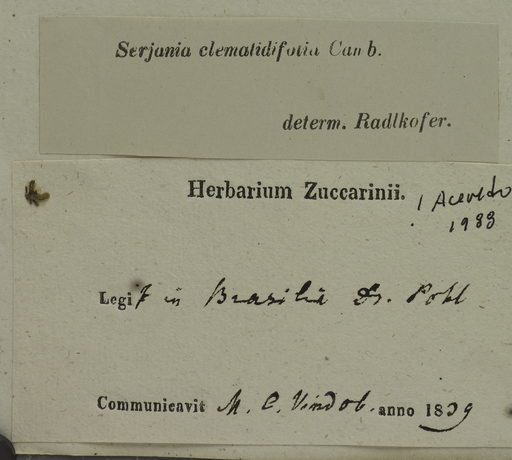 Serjania clematidifolia Camb.
determ. Radlkofer.
Herbarium Zuccarinii.
! Acevedo
1988
Legit in Brasilia Dr. Pohl
Communicavit M. C. Vindob. anno 1839